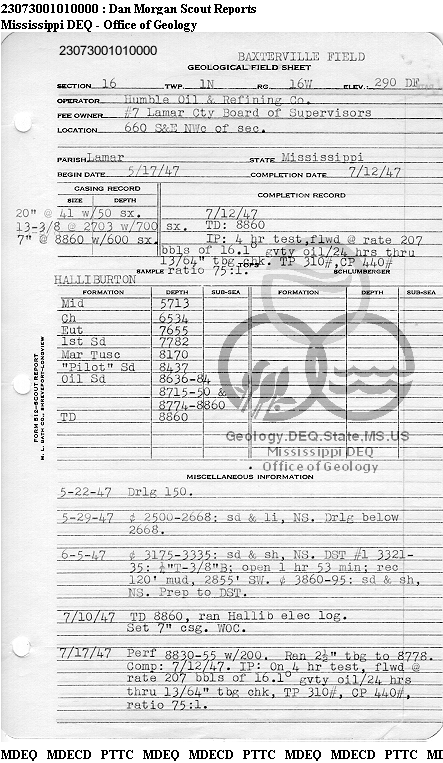 23073001010000 : Dan Morgan Scout Reports
Mississippi DEQ - Office of Geology
23073001010000
BAXTERVILLE FIELD
GEOLOGICAL FIELD SHEET
SECTION 16 TWP. 1N RG. 16W ELEV.: 290 DF
OPERATOR Humble Oil & Refining Co.
FEE OWNER #7 Lamar Cty Board of Supervisors
LOCATION 660 S&E NWc of sec.
PARISH Lamar STATE Mississippi
BEGIN DATE 5/17/47 COMPLETION DATE 7/12/47
CASING RECORD COMPLETION RECORD
SIZE DEPTH
20" @ 41 w/50 sx. 7/12/47
13-3/8 @ 2703 w/700 sx. TD: 8860
7" @ 8860 w/600 sx. IP: 4 hr test, flwd @ rate 207
bbls of 16.1° gvty oil/24 hrs thru
13/64" tbg chk. TP 310#, CP 440#
SAMPLE ratio 75:1. TOPS SCHLUMBERGER
HALLIBURTON
FORMATION DEPTH SUB-SEA FORMATION DEPTH SUB-SEA
Mid 5713
Ch 6534
Eut 7655
1st Sd 7782
Mar Tusc 8170
"Pilot" Sd 8437
Oil Sd 8636-84
8715-50 &
8774-8860
TD 8860
FORM 512—SCOUT REPORT
M. L. BATH CO., SHREVEPORT-LONGVIEW
Geology.DEQ.State.MS.US
Mississippi DEQ
Office of Geology
MISCELLANEOUS INFORMATION
5-22-47 Drlg 150.
5-29-47 ¢ 2500-2668: sd & li, NS. Drlg below
2668.
6-5-47 ¢ 3175-3335: sd & sh, NS. DST #1 3321-
35: ¼"T-3/8"B; open 1 hr 53 min; rec
120' mud, 2855' SW. ¢ 3860-95: sd & sh,
NS. Prep to DST.
7/10/47 TD 8860, ran Hallib elec log.
Set 7" csg. WOC.
7/17/47 Perf 8830-55 w/200. Ran 2½" tbg to 8778.
Comp: 7/12/47. IP: On 4 hr test, flwd @
rate 207 bbls of 16.1° gvty oil/24 hrs
thru 13/64" tbg chk, TP 310#, CP 440#,
ratio 75:1.
MDEQ MDECD PTTC MDEQ MDECD PTTC MDEQ MDECD PTTC MI